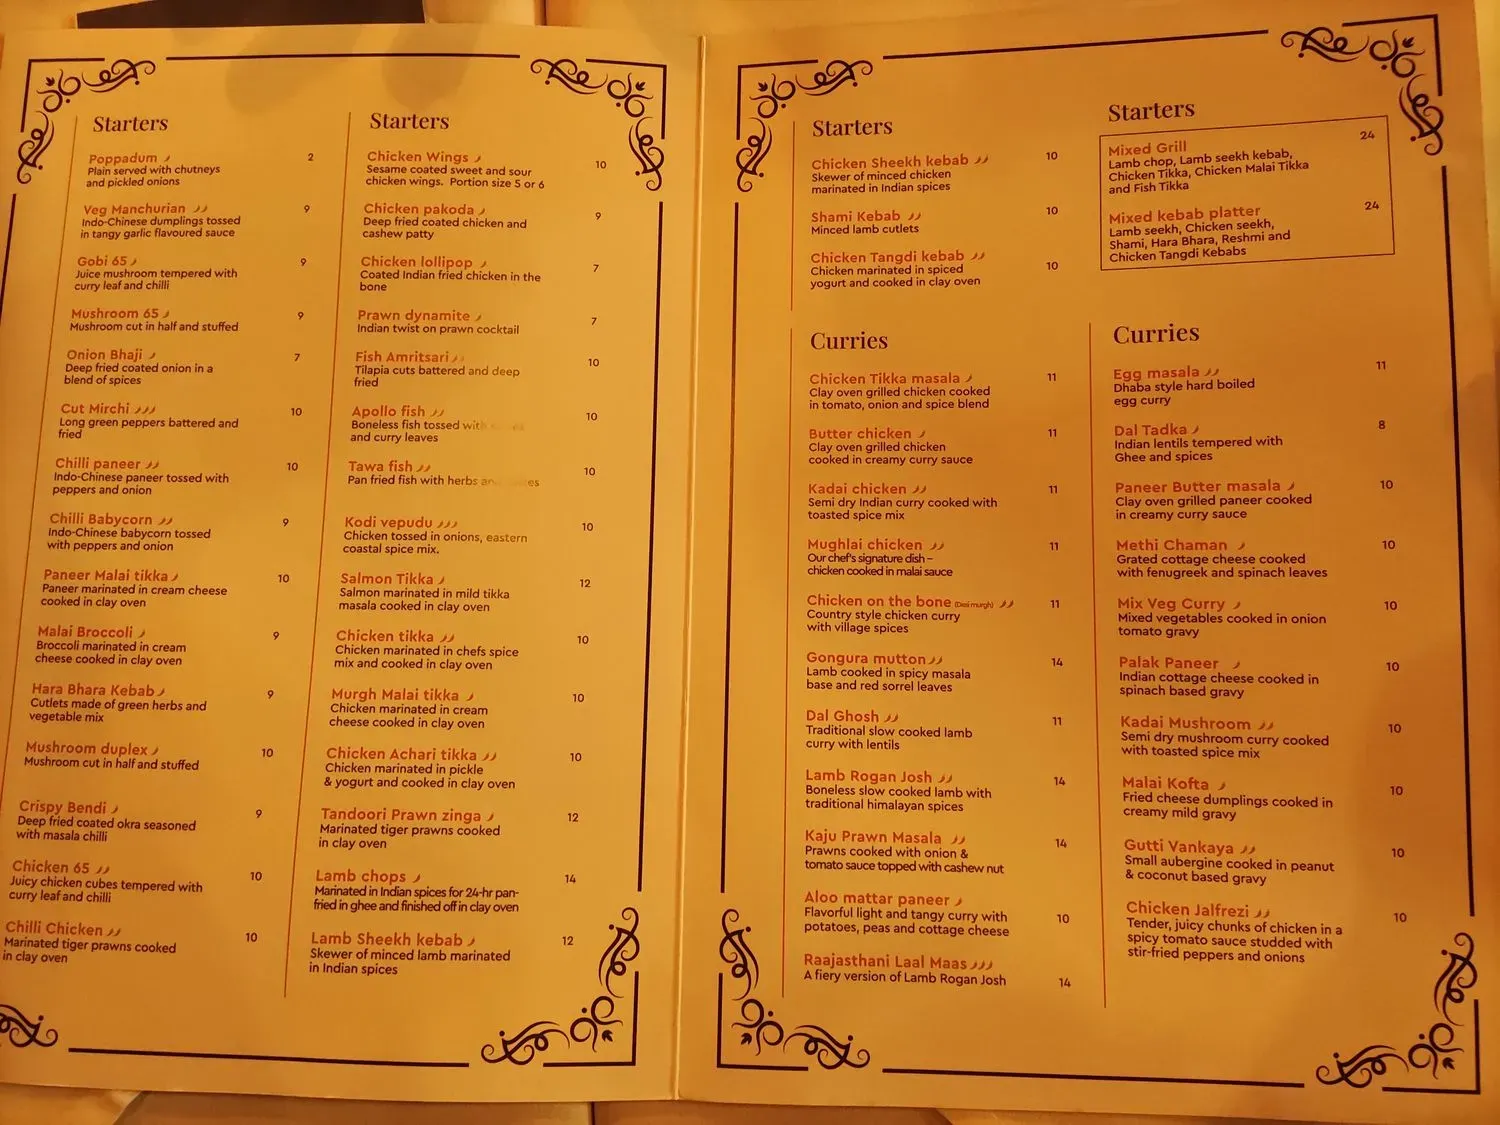 Starters
Poppadum 2
Plain served with chutneys
and pickled onions
Veg Manchurian 9
Indo-Chinese dumplings tossed
in tangy garlic flavoured sauce
Gobi 65 9
Juice mushroom tempered with
curry leaf and chilli
Mushroom 65 9
Mushroom cut in half and stuffed
Onion Bhaji 7
Deep fried coated onion in a
blend of spices
Cut Mirchi 10
Long green peppers battered and
fried
Chilli paneer 10
Indo-Chinese paneer tossed with
peppers and onion
Chilli Babycorn 9
Indo-Chinese babycorn tossed
with peppers and onion
Paneer Malai tikka 10
Paneer marinated in cream cheese
cooked in clay oven
Malai Broccoli 9
Broccoli marinated in cream
cheese cooked in clay oven
Hara Bhara Kebab 9
Cutlets made of green herbs and
vegetable mix
Mushroom duplex 10
Mushroom cut in half and stuffed
Crispy Bendi 9
Deep fried coated okra seasoned
with masala chilli
Chicken 65 10
Juicy chicken cubes tempered with
curry leaf and chilli
Chilli Chicken 10
Marinated tiger prawns cooked
in clay oven
Starters
Chicken Wings 10
Sesame coated sweet and sour
chicken wings. Portion size 5 or 6
Chicken pakoda 9
Deep fried coated chicken and
cashew patty
Chicken lollipop 7
Coated Indian fried chicken in the
bone
Prawn dynamite 7
Indian twist on prawn cocktail
Fish Amritsari 10
Tilapia cuts battered and deep
fried
Apollo fish 10
Boneless fish tossed with
and curry leaves
Tawa fish 10
Pan fried fish with herbs
Kodi vepudu 10
Chicken tossed in onions, eastern
coastal spice mix.
Salmon Tikka 12
Salmon marinated in mild tikka
masala cooked in clay oven
Chicken tikka 10
Chicken marinated in chefs spice
mix and cooked in clay oven
Murgh Malai tikka 10
Chicken marinated in cream
cheese cooked in clay oven
Chicken Achari tikka 10
Chicken marinated in pickle
& yogurt and cooked in clay oven
Tandoori Prawn zinga 12
Marinated tiger prawns cooked
in clay oven
Lamb chops 14
Marinated in Indian spices for 24-hr pan-
fried in ghee and finished off in clay oven
Lamb Sheekh kebab 12
Skewer of minced lamb marinated
in Indian spices
Starters
Chicken Sheekh kebab 10
Skewer of minced chicken
marinated in Indian spices
Shami Kebab 10
Minced lamb cutlets
Chicken Tangdi kebab 10
Chicken marinated in spiced
yogurt and cooked in clay oven
Starters
Mixed Grill 24
Lamb chop, Lamb seekh kebab,
Chicken Tikka, Chicken Malai Tikka
and Fish Tikka
Mixed kebab platter 24
Lamb seekh, Chicken seekh,
Shami, Hara Bhara, Reshmi and
Chicken Tangdi Kebabs
Curries
Chicken Tikka masala 11
Clay oven grilled chicken cooked
in tomato, onion and spice blend
Butter chicken 11
Clay oven grilled chicken
cooked in creamy curry sauce
Kadai chicken 11
Semi dry Indian curry cooked with
toasted spice mix
Mughlai chicken 11
Our chef's signature dish –
chicken cooked in malai sauce
Chicken on the bone (Desi murgh) 11
Country style chicken curry
with village spices
Gongura mutton 14
Lamb cooked in spicy masala
base and red sorrel leaves
Dal Ghosh 11
Traditional slow cooked lamb
curry with lentils
Lamb Rogan Josh 14
Boneless slow cooked lamb with
traditional himalayan spices
Kaju Prawn Masala 14
Prawns cooked with onion &
tomato sauce topped with cashew nut
Aloo mattar paneer 10
Flavorful light and tangy curry with
potatoes, peas and cottage cheese
Raajasthani Laal Maas 14
A fiery version of Lamb Rogan Josh
Curries
Egg masala 11
Dhaba style hard boiled
egg curry
Dal Tadka 8
Indian lentils tempered with
Ghee and spices
Paneer Butter masala 10
Clay oven grilled paneer cooked
in creamy curry sauce
Methi Chaman 10
Grated cottage cheese cooked
with fenugreek and spinach leaves
Mix Veg Curry 10
Mixed vegetables cooked in onion
tomato gravy
Palak Paneer 10
Indian cottage cheese cooked in
spinach based gravy
Kadai Mushroom 10
Semi dry mushroom curry cooked
with toasted spice mix
Malai Kofta 10
Fried cheese dumplings cooked in
creamy mild gravy
Gutti Vankaya 10
Small aubergine cooked in peanut
& coconut based gravy
Chicken Jalfrezi 10
Tender, juicy chunks of chicken in a
spicy tomato sauce studded with
stir-fried peppers and onions